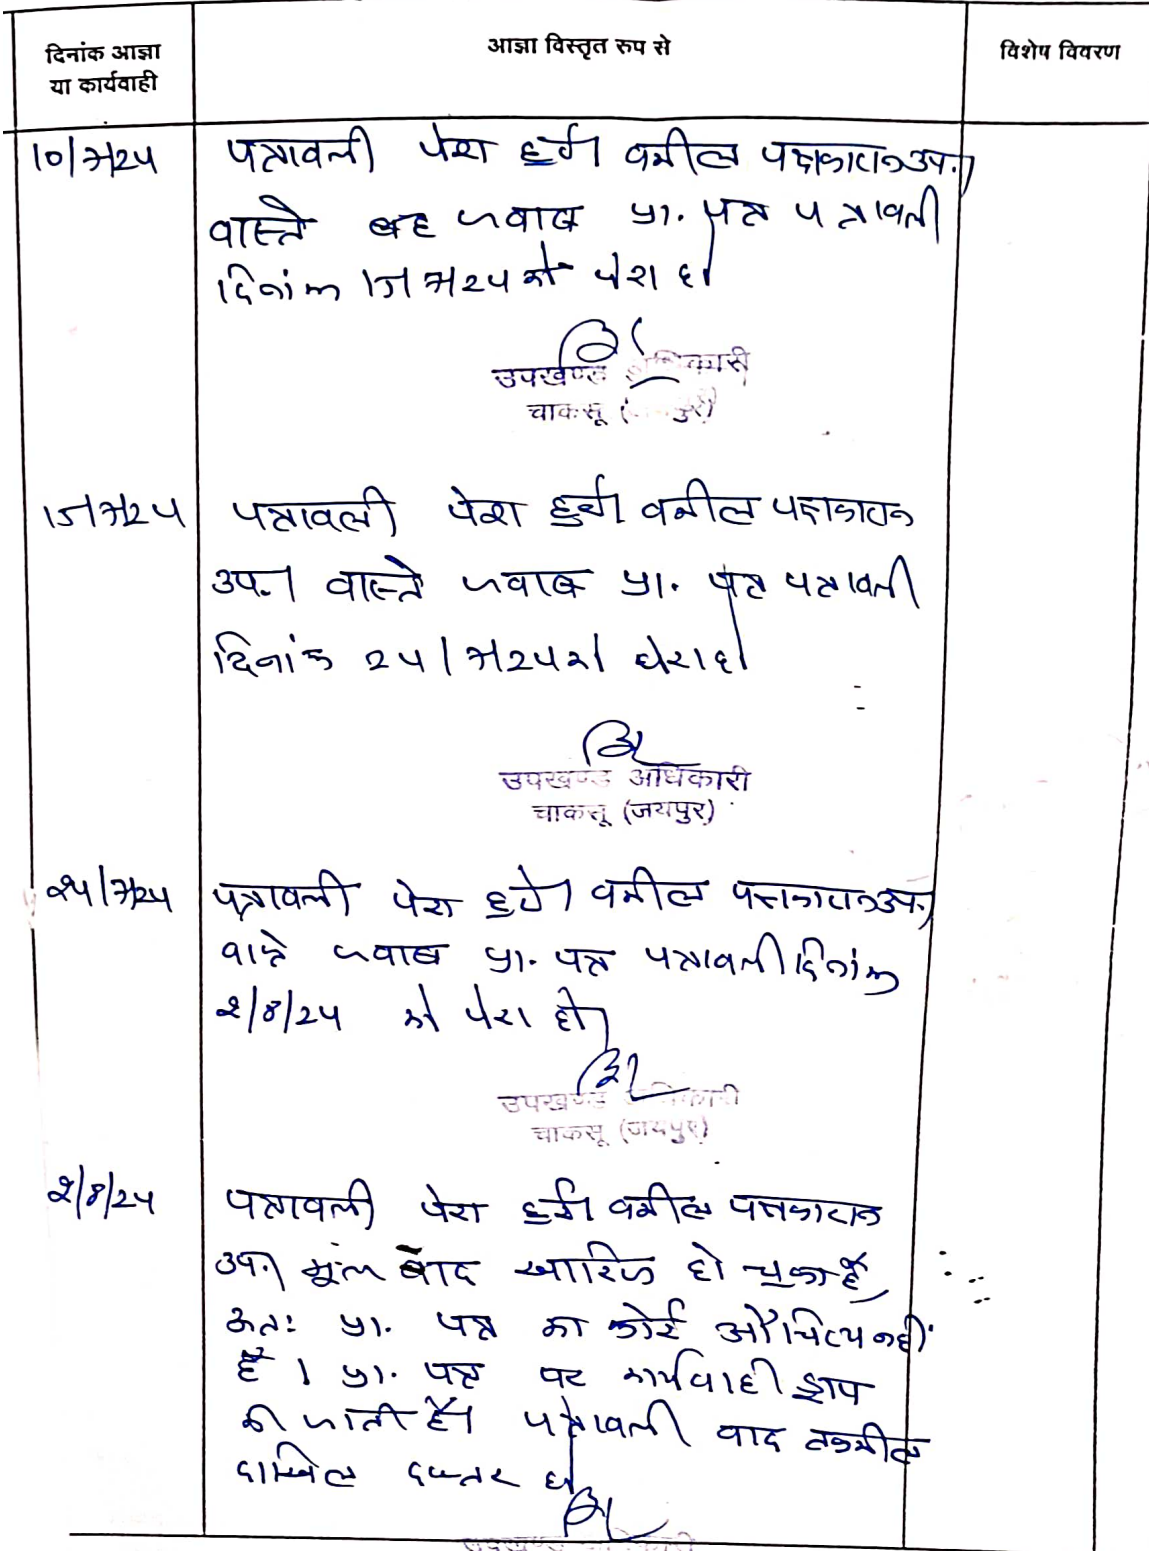 दिनांक आज्ञा
या कार्यवाही
आज्ञा विस्तृत रुप से
विशेष विवरण
10/7/24 पत्रावली पेश हुई। वकील पक्षकारान उप.।
वास्ते बहस जवाब प्रा. पत्र पत्रावली
दिनांक 15/7/24 को पेश हो।
उपखण्ड अधिकारी
चाकसू (जयपुर)
15/7/24 पत्रावली पेश हुई। वकील पक्षकारान
उप.। वास्ते जवाब प्रा. पत्र पत्रावली
दिनांक 24/7/24 को पेश हो।
उपखण्ड अधिकारी
चाकसू (जयपुर)
24/7/24 पत्रावली पेश हुई। वकील पक्षकारान उप.।
वास्ते जवाब प्रा. पत्र पत्रावली दिनांक
2/8/24 को पेश हो।
उपखण्ड अधिकारी
चाकसू (जयपुर)
2/8/24 पत्रावली पेश हुई। वकील पक्षकारान
उप.। मूल वाद खारिज हो चुका है,
अतः प्रा. पत्र का कोई औचित्य नहीं
है। प्रा. पत्र पर कार्यवाही ड्राप
की जाती है। पत्रावली वाद तकमील
दाखिल दफ्तर हो।
उपखण्ड अधिकारी